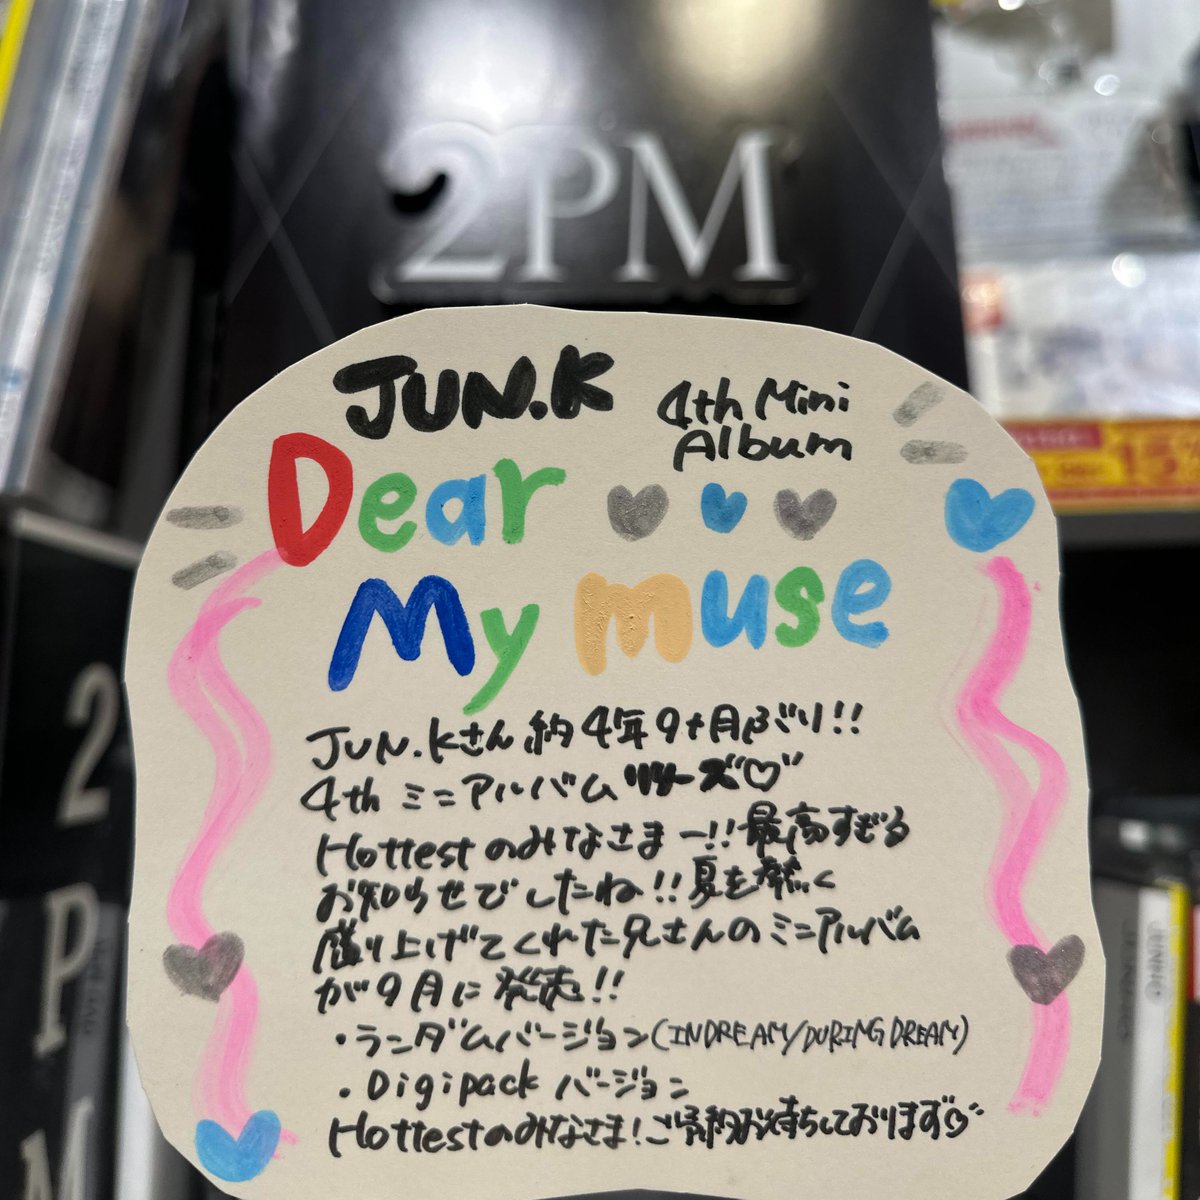 2PM
JUN.K
4th Mini
Album
Dear
My muse
JUN.Kさん約4年9ヶ月ぶり!!
4thミニアルバムリリーズ♡
Hottestのみなさまー!!最高すぎる
お知らせでしたね!!夏を熱く
盛り上げてくれた兄さんのミニアルバム
が9月に発売!!
・ランダムバージョン(IN DREAM/DURING DREAM)
・Digipackバージョン
Hottestのみなさま!ご予約お待ちしております♡
2PM
15%